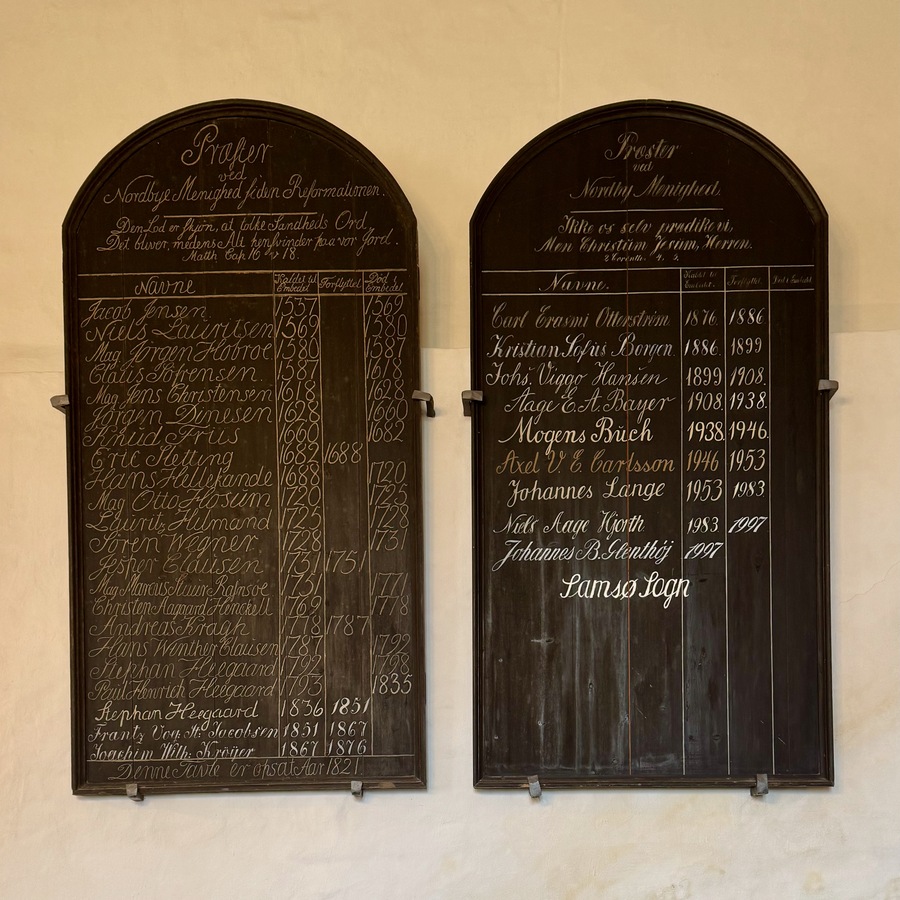 Præster
ved
Nordbye Menighed siden Reformationen.
Den Lod er skjön, at tolke Sandheds Ord
Det bliver, medens Alt hensvinder paa vor Jord.
Matth Cap. 16 v 18.
Navne Kaldet til Embedet Forflyttet Död Embedet
Jacob Jensen 1537 1569
Niels Lauritsen 1569 1580
Mag Jörgen Hobroe 1580 1587
Claus Sörensen. 1587 1618
Mag Jens Christensen 1618 1628
Jörgen Dinesen 1628 1660
Knud Friis 1660 1682
Eric Pletting 1682 1688
Hans Hillebrandt 1688 1720
Mag Otto Hosum 1720 1725
Laurits Hilmand 1725 1728
Sören Wegner 1728 1731
Jesper Clausen 1731 1751
Mag Marcus 1751 1771
Christen Aagaard Heinckell 1769 1778
Andreas Kragh 1778 1787
Hans Winther Clausen 1787 1792
Stephan Heegaard 1792 1798
Paul Henrich Heegaard 1793 1835
Stephan Heegaard 1836 1851
Frantz Vog. St. Jacobsen 1851 1867
Joachim Wilh: Kröyer 1867 1876
Denne Tavle er opsat Aar 1821
Præster
ved
Nordby Menighed
Ikke os selv prædike vi,
Men Christum Jesum, Herren.
2 Corinth. 4. 5.
Navne. Kaldet til Embedet. Forflyttet. Död i Embedet.
Carl Erasmi Otterström 1876. 1886
Kristian Sofus Borgen. 1886. 1899
Johs. Viggo Hansen 1899 1908.
Aage E. A. Bayer 1908 1938.
Mogens Buch 1938 1946.
Axel V. E. Carlsson 1946 1953
Johannes Lange 1953 1983
Niels Aage Hjorth 1983 1997
Johannes B. Glenthöj 1997
Samsø Sogn